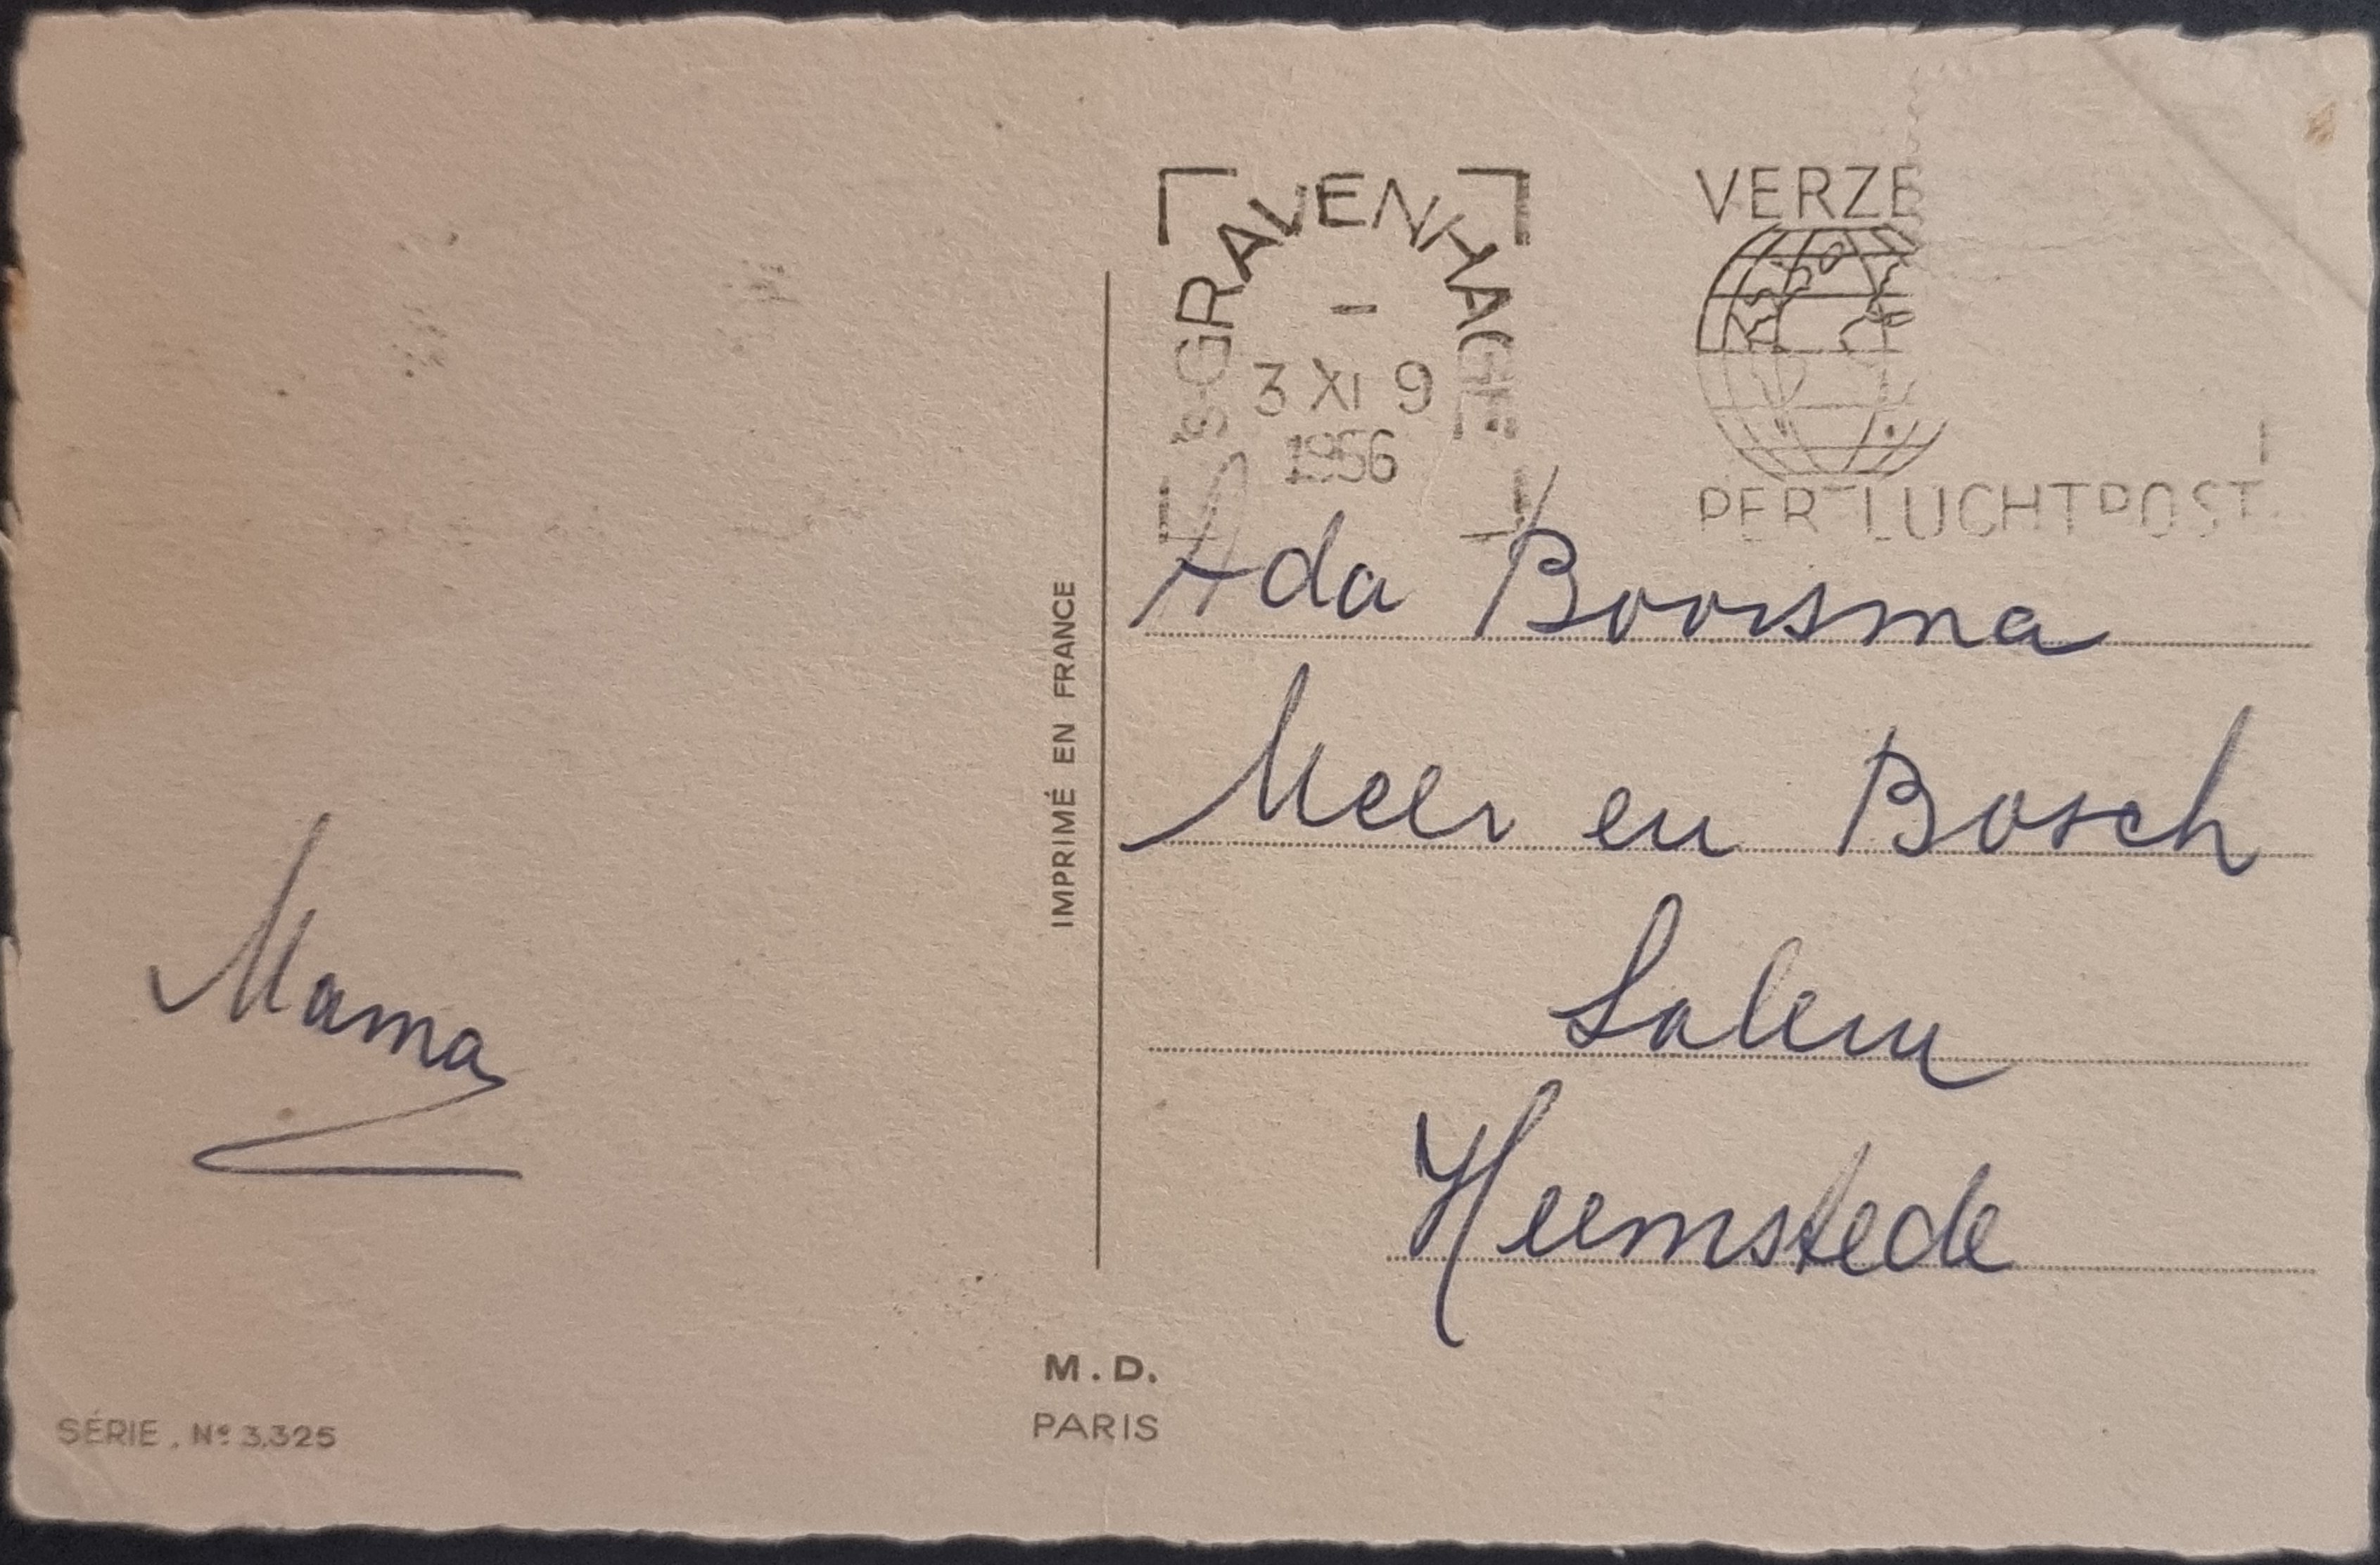 's-GRAVENHAGE
-
3 XI 9
1956
VERZE
PER LUCHTPOST
Ada Boorsma
Meer en Bosch
Salem
Heemstede
Mama
IMPRIMÉ EN FRANCE
M.D.
PARIS
SÉRIE. Nº 3.325